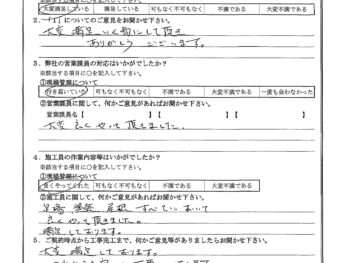 大変満足している 満足している 可もなく不可もなく 不満である 大変不満である
についてのご意見をお聞かせ下さい。
大変 満足
ありがとう ございます。
3. 弊社の営業職員の対応はいかがでしたか?
※該当する項目に○を記入して下さい。
①現場管理について
行き届いていた 可もなく不可もなく 不満である 大変不満である 一度も会わなかった
②営業職員に関して、何かご意見があればお聞かせ下さい。
営業職員名【 】【 】【 】
大変 良く やって 頂きました。
4. 施工員の作業内容等はいかがでしたか?
※該当する項目に○を記入して下さい。
①現場管理について
良くやってくれた 可もなく不可もなく 不満である 大変不満である
②施工員に関して、何かご意見があればお聞かせ下さい。
足場 塗装 屋根 すべてに おいて
良く やって 頂きました。
満足して おります。
5. ご契約時点から工事完工まで、何かご意見等ありましたらお聞かせ下さい。
大変 満足して おります。